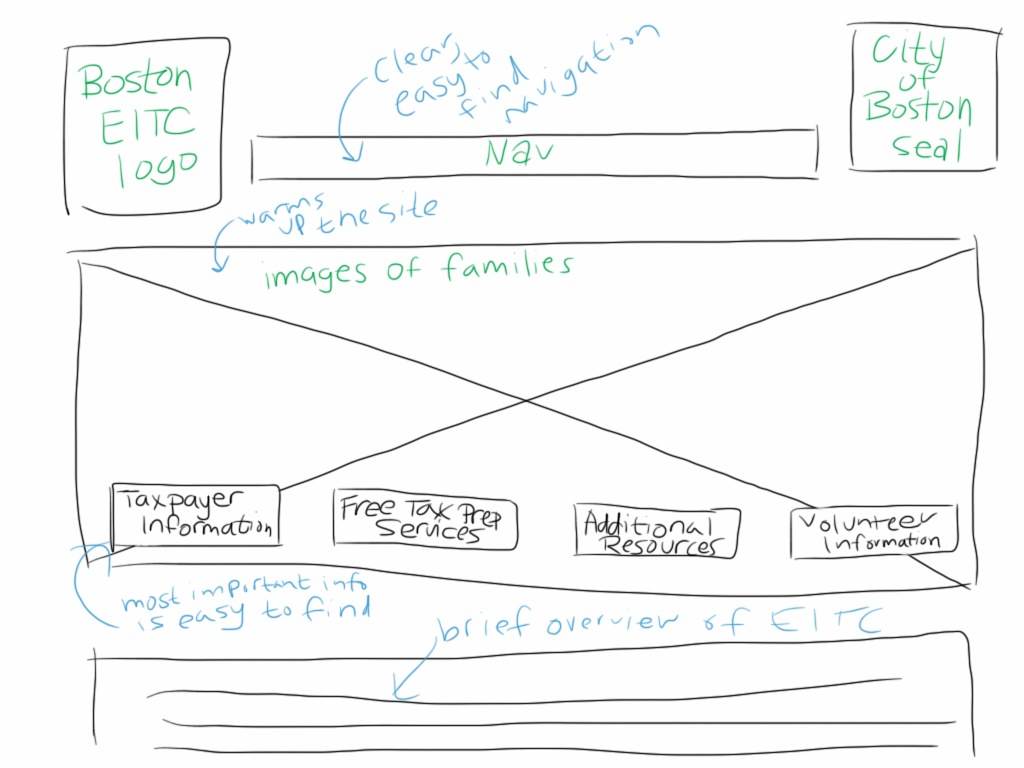 Boston
EITC
logo
clear,
easy to
find
navigation
City
of
Boston
seal
Nav
warms
up the site
images of families
Taxpayer
Information
Free Tax Prep
Services
Additional
Resources
Volunteer
Information
most important info
is easy to find
brief overview of EITC